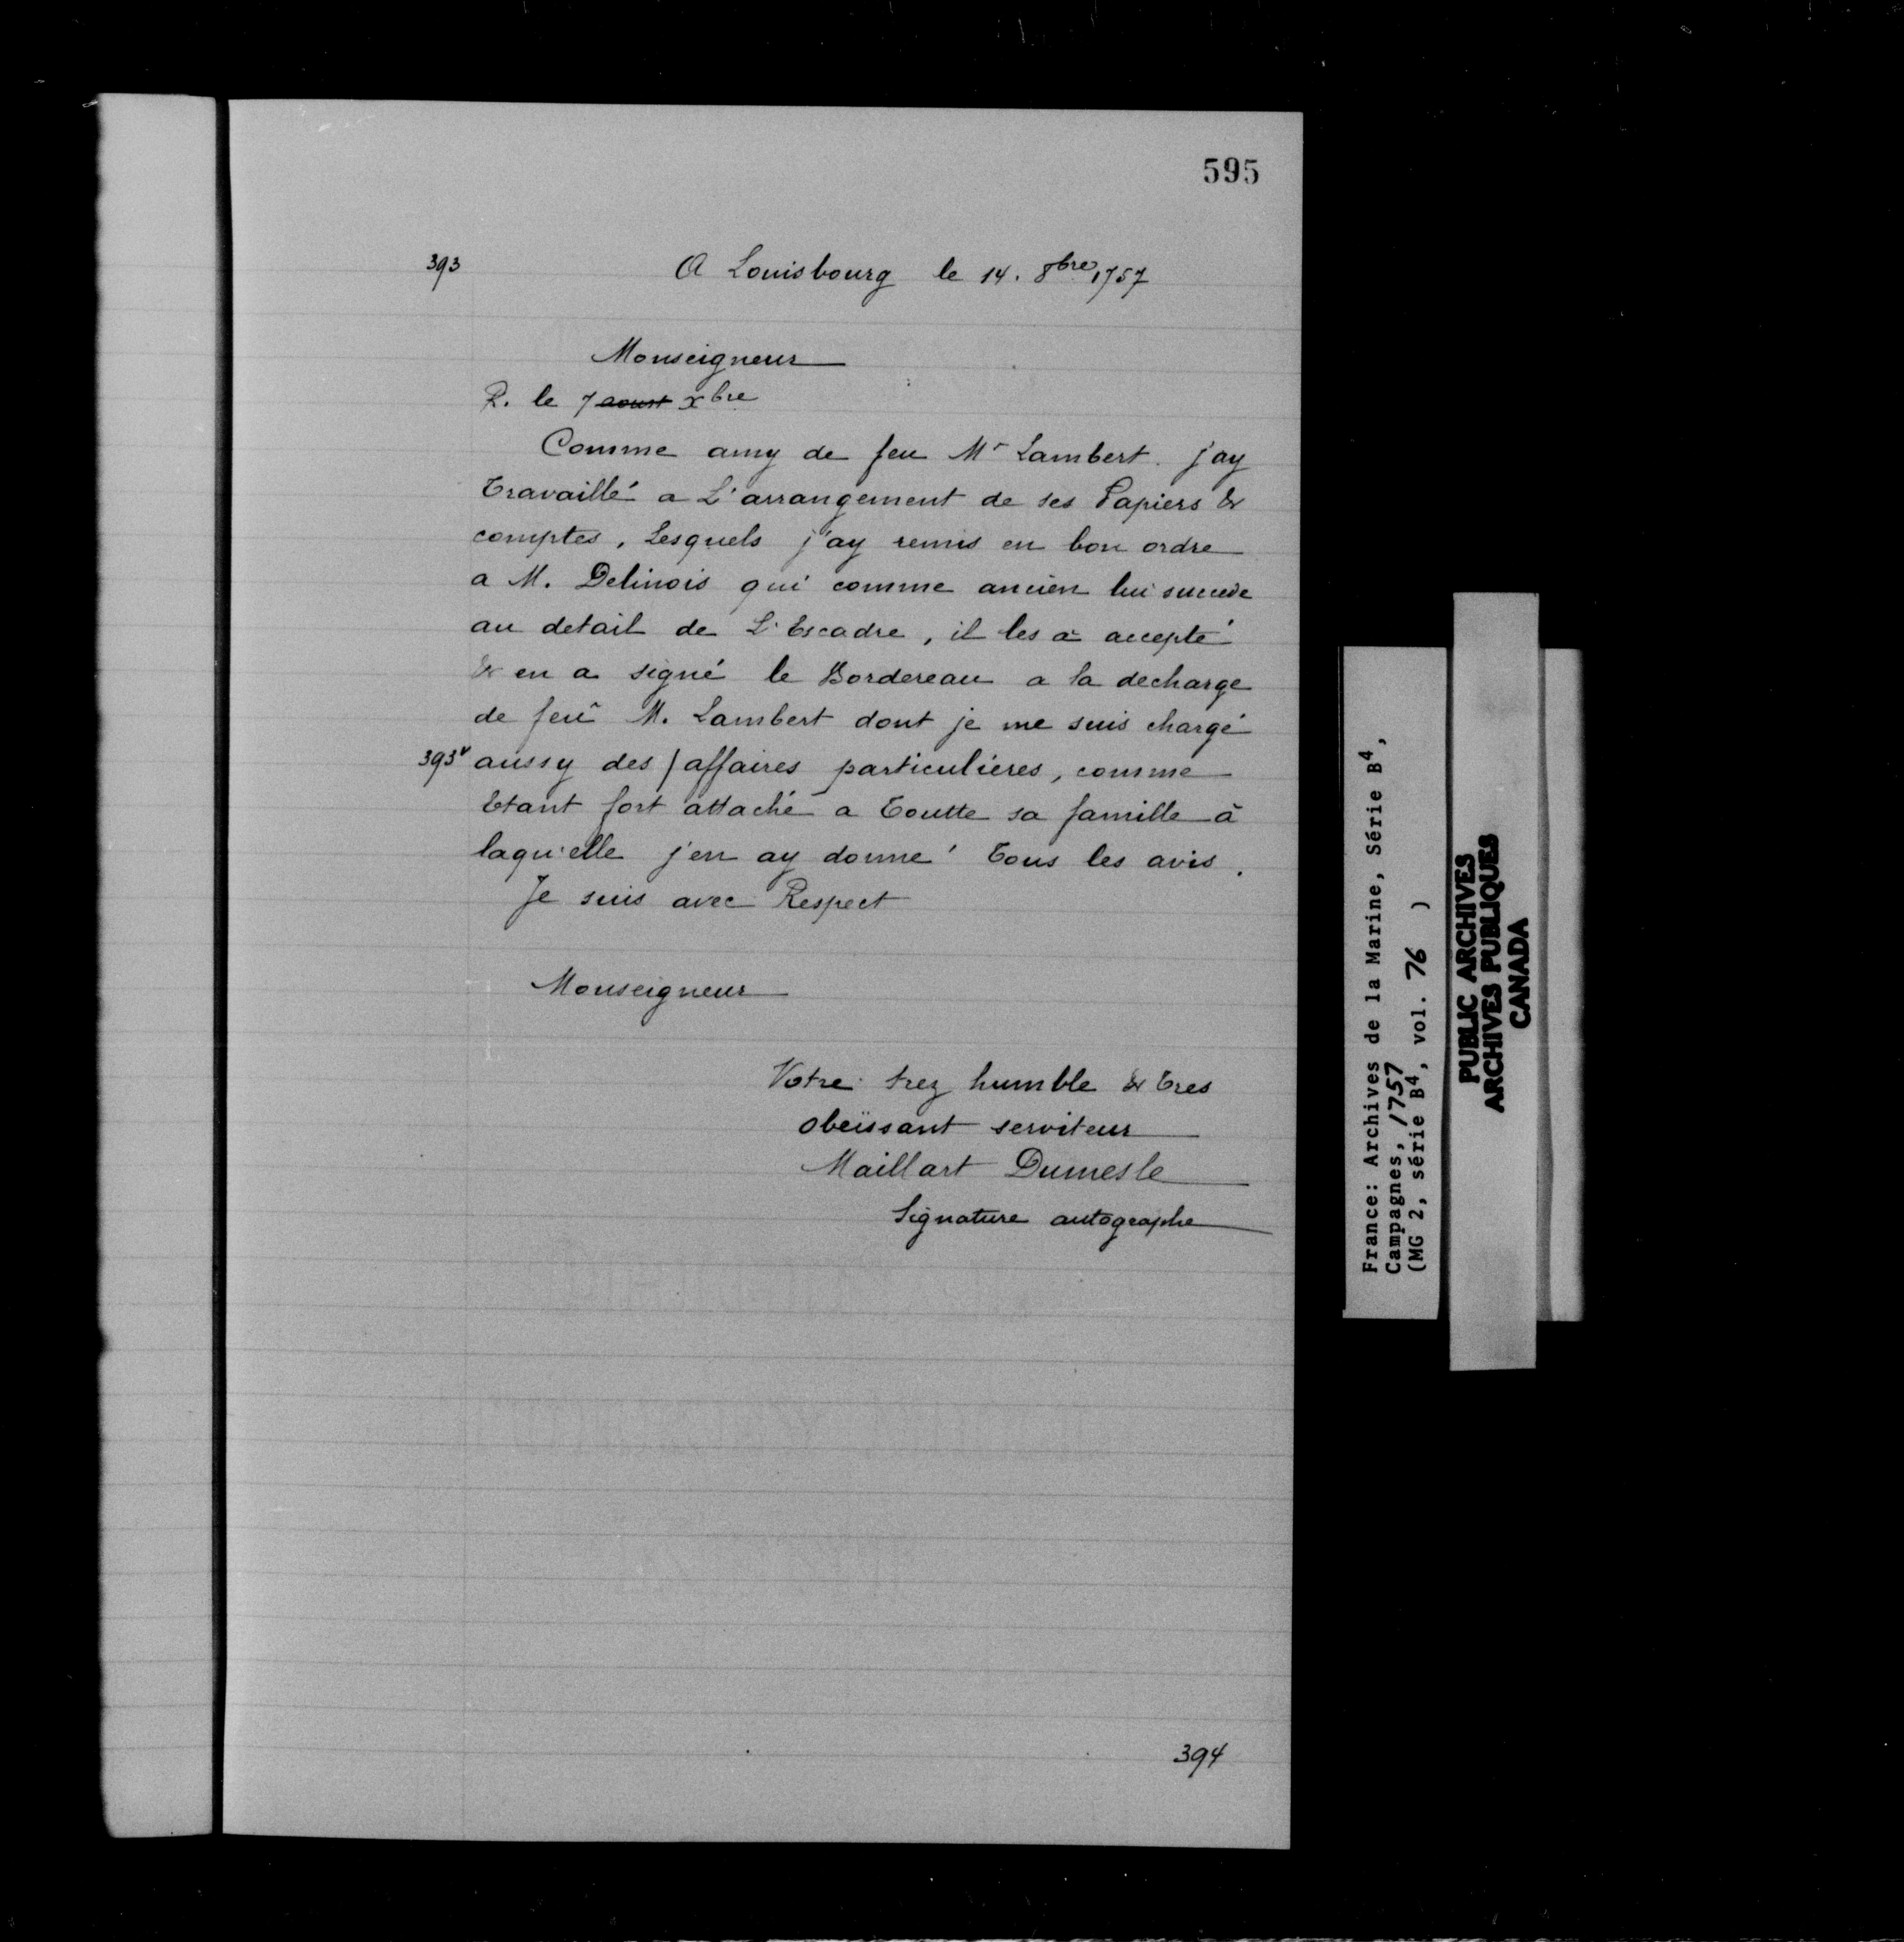 595
393
A Louisbourg le 14. 8bre 1757
Monseigneur
R. le 7 aoust xbre
Comme amy de feu Mr Lambert. j'ay
Travaillé a L'arrangement de ses Papiers &
comptes, Lesquels j'ay remis en bon ordre
a M. Delinois qui comme ancien lui succede
au detail de L'Escadre, il les a accepté
& en a signé le Bordereau a la decharge
de feu M. Lambert dont je me suis chargé
393v aussy des / affaires particulières, comme
Etant fort attaché a Toutte sa famille à
laqu'elle j'en ay donné Tous les avis.
Je suis avec Respect
Monseigneur
Votre trez humble & Tres
obeïssant serviteur
Maillart Dumesle
Signature autographe
394
France: Archives de la Marine, Série B4,
Campagnes, 1757
(MG 2, série B4, vol. 76 )
PUBLIC ARCHIVES
ARCHIVES PUBLIQUES
CANADA